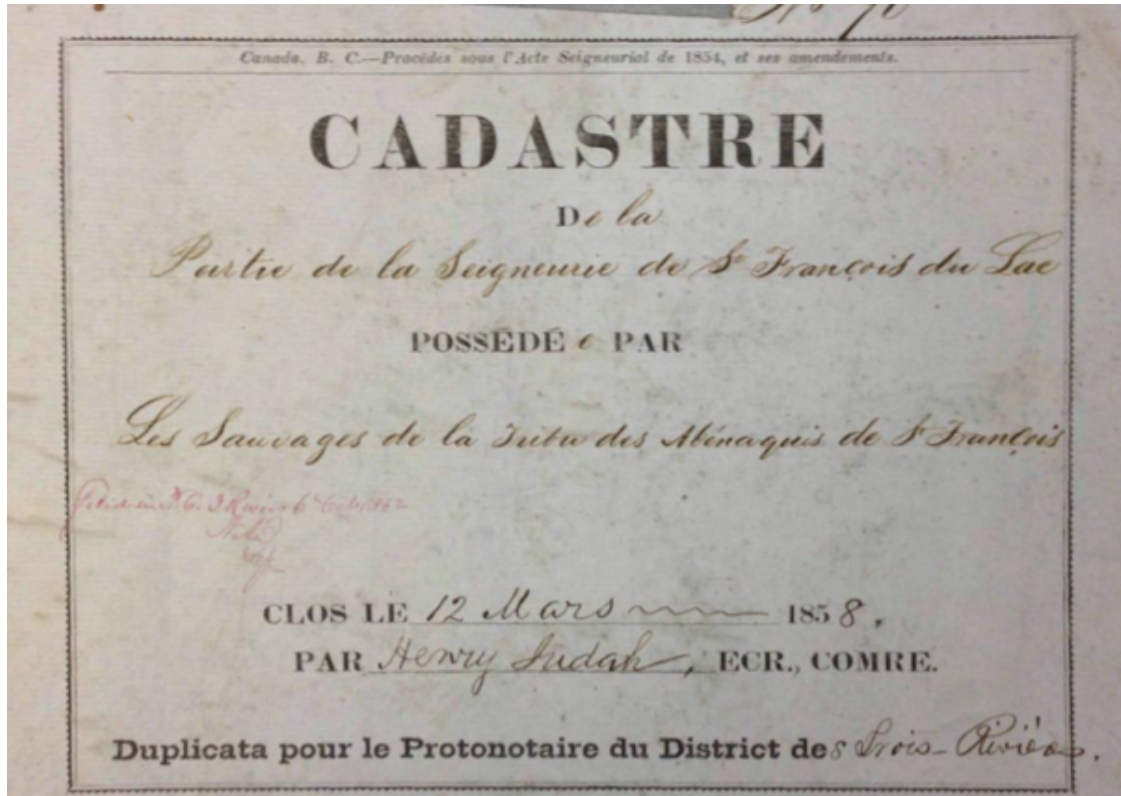 No
Canada. B. C.—Procédés sous l'Acte Seigneurial de 1854, et ses amendements.
CADASTRE
De la
Partie de la Seigneurie de St François du Lac
POSSÉDÉe PAR
Les Sauvages de la Tribu des Abénaquis de St François
CLOS LE 12 Mars 1858.
PAR Henry Judah, ECR., COMRE.
Duplicata pour le Protonotaire du District des Trois-Rivières.